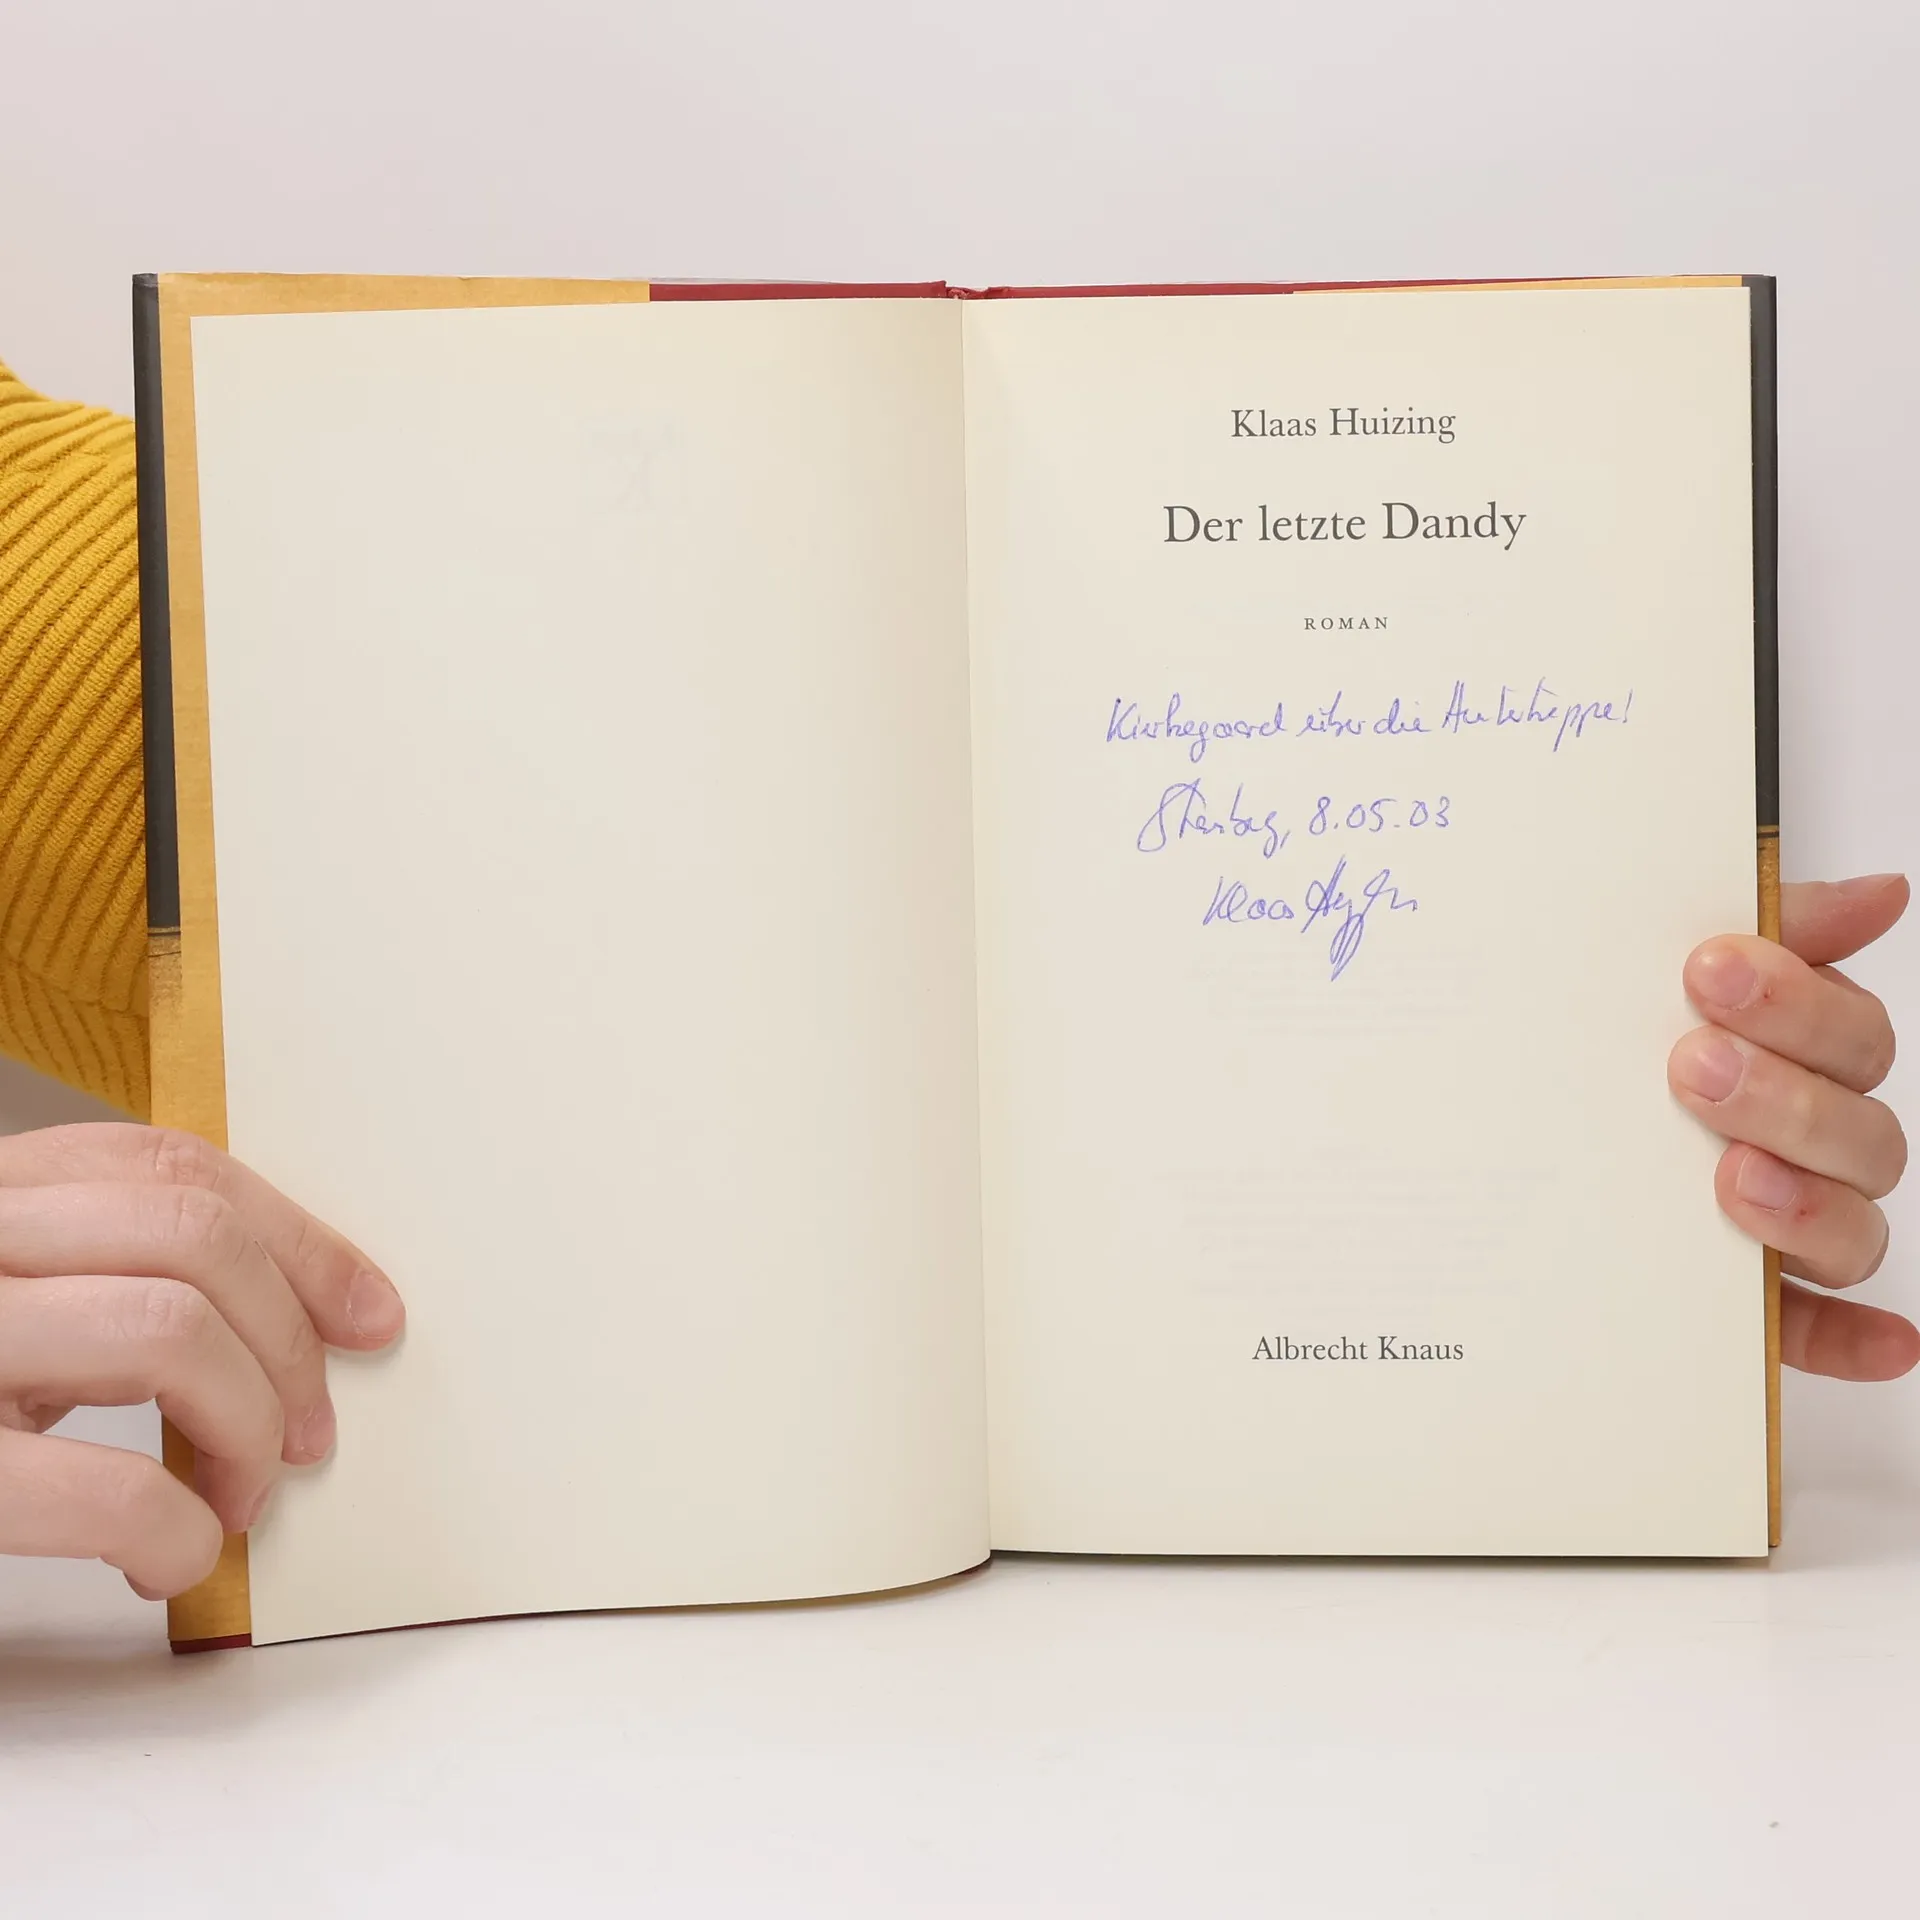 Klaas Huizing
Der letzte Dandy
ROMAN
Kierkegaard über die
8.05.03
Klaas
Albrecht Knaus